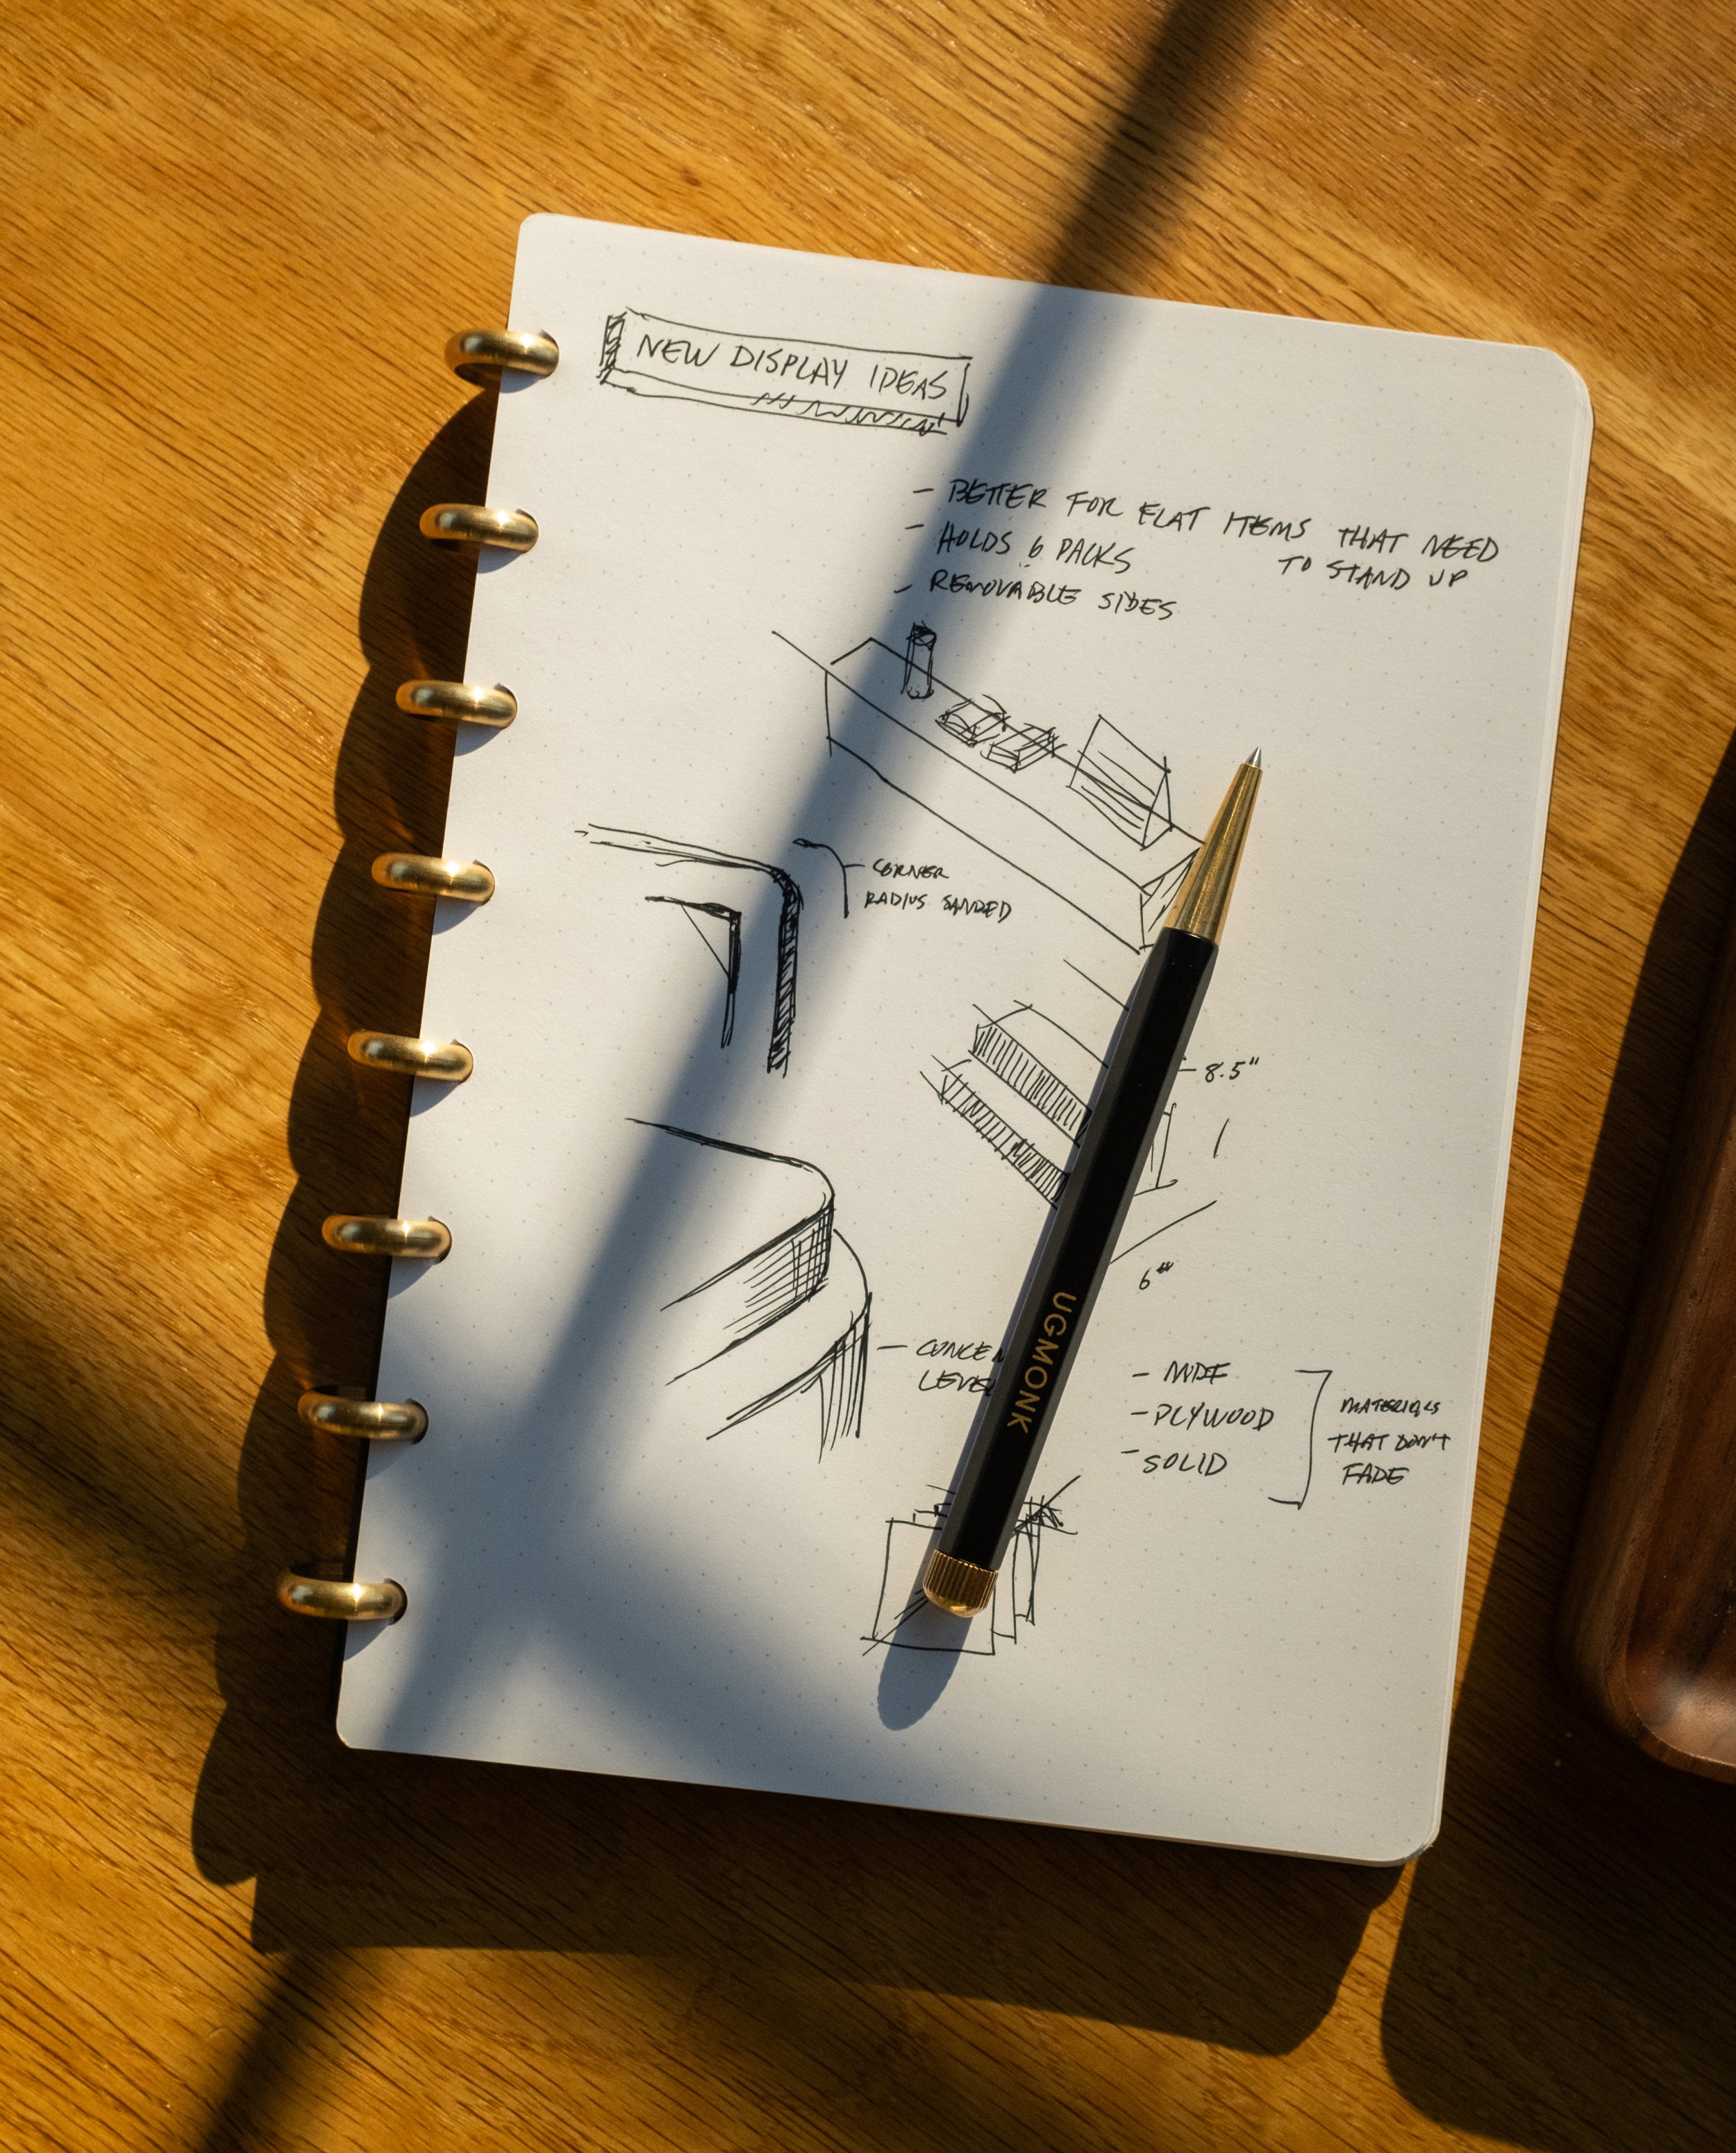 NEW DISPLAY IDEAS
- BETTER FOR FLAT ITEMS THAT NEED
TO STAND UP
- HOLDS 6 PACKS
- REMOVABLE SIDES
- CORNER
RADIUS SANDED
- 8.5"
6"
-
- MDF
- PLYWOOD
- SOLID
MATERIALS
THAT DON'T
FADE
UGMONK